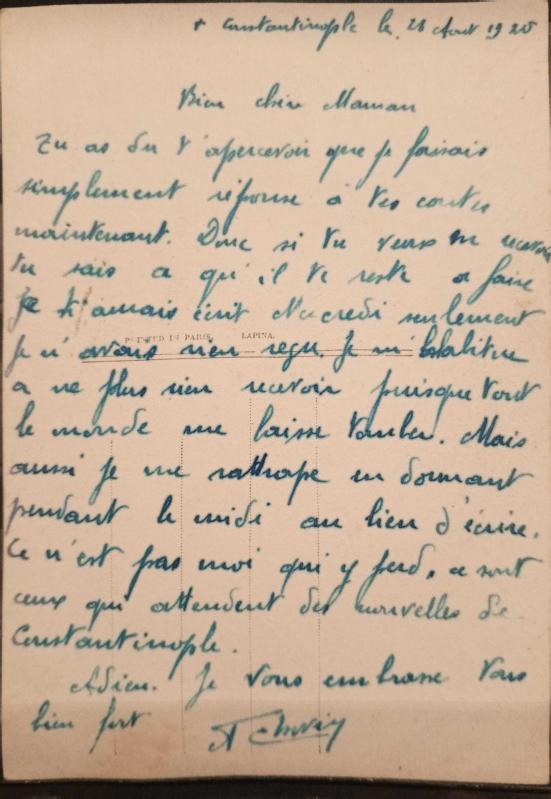 + Constantinople le 28 Aout 1920
Bien chère Maman
Tu as du t'apercevoir que je faisais
simplement réponse à tes cartes
maintenant. Donc si tu veux en recevoir
tu sais ce qu'il te reste a faire
Je écrit Mercredi seulement
Je n'avais rien reçu. Je m'habitue
a ne plus rien recevoir puisque tout
le monde me laisse tomber. Mais
aussi je me rattrape en dormant
pendant le midi au lieu d'écrire.
Ce n'est pas moi qui y perd, ce sont
ceux qui attendent des nouvelles de
Constantinople.
Adieu. Je vous embrasse tous
bien fort
PRINTED IN PARIS LAPINA.